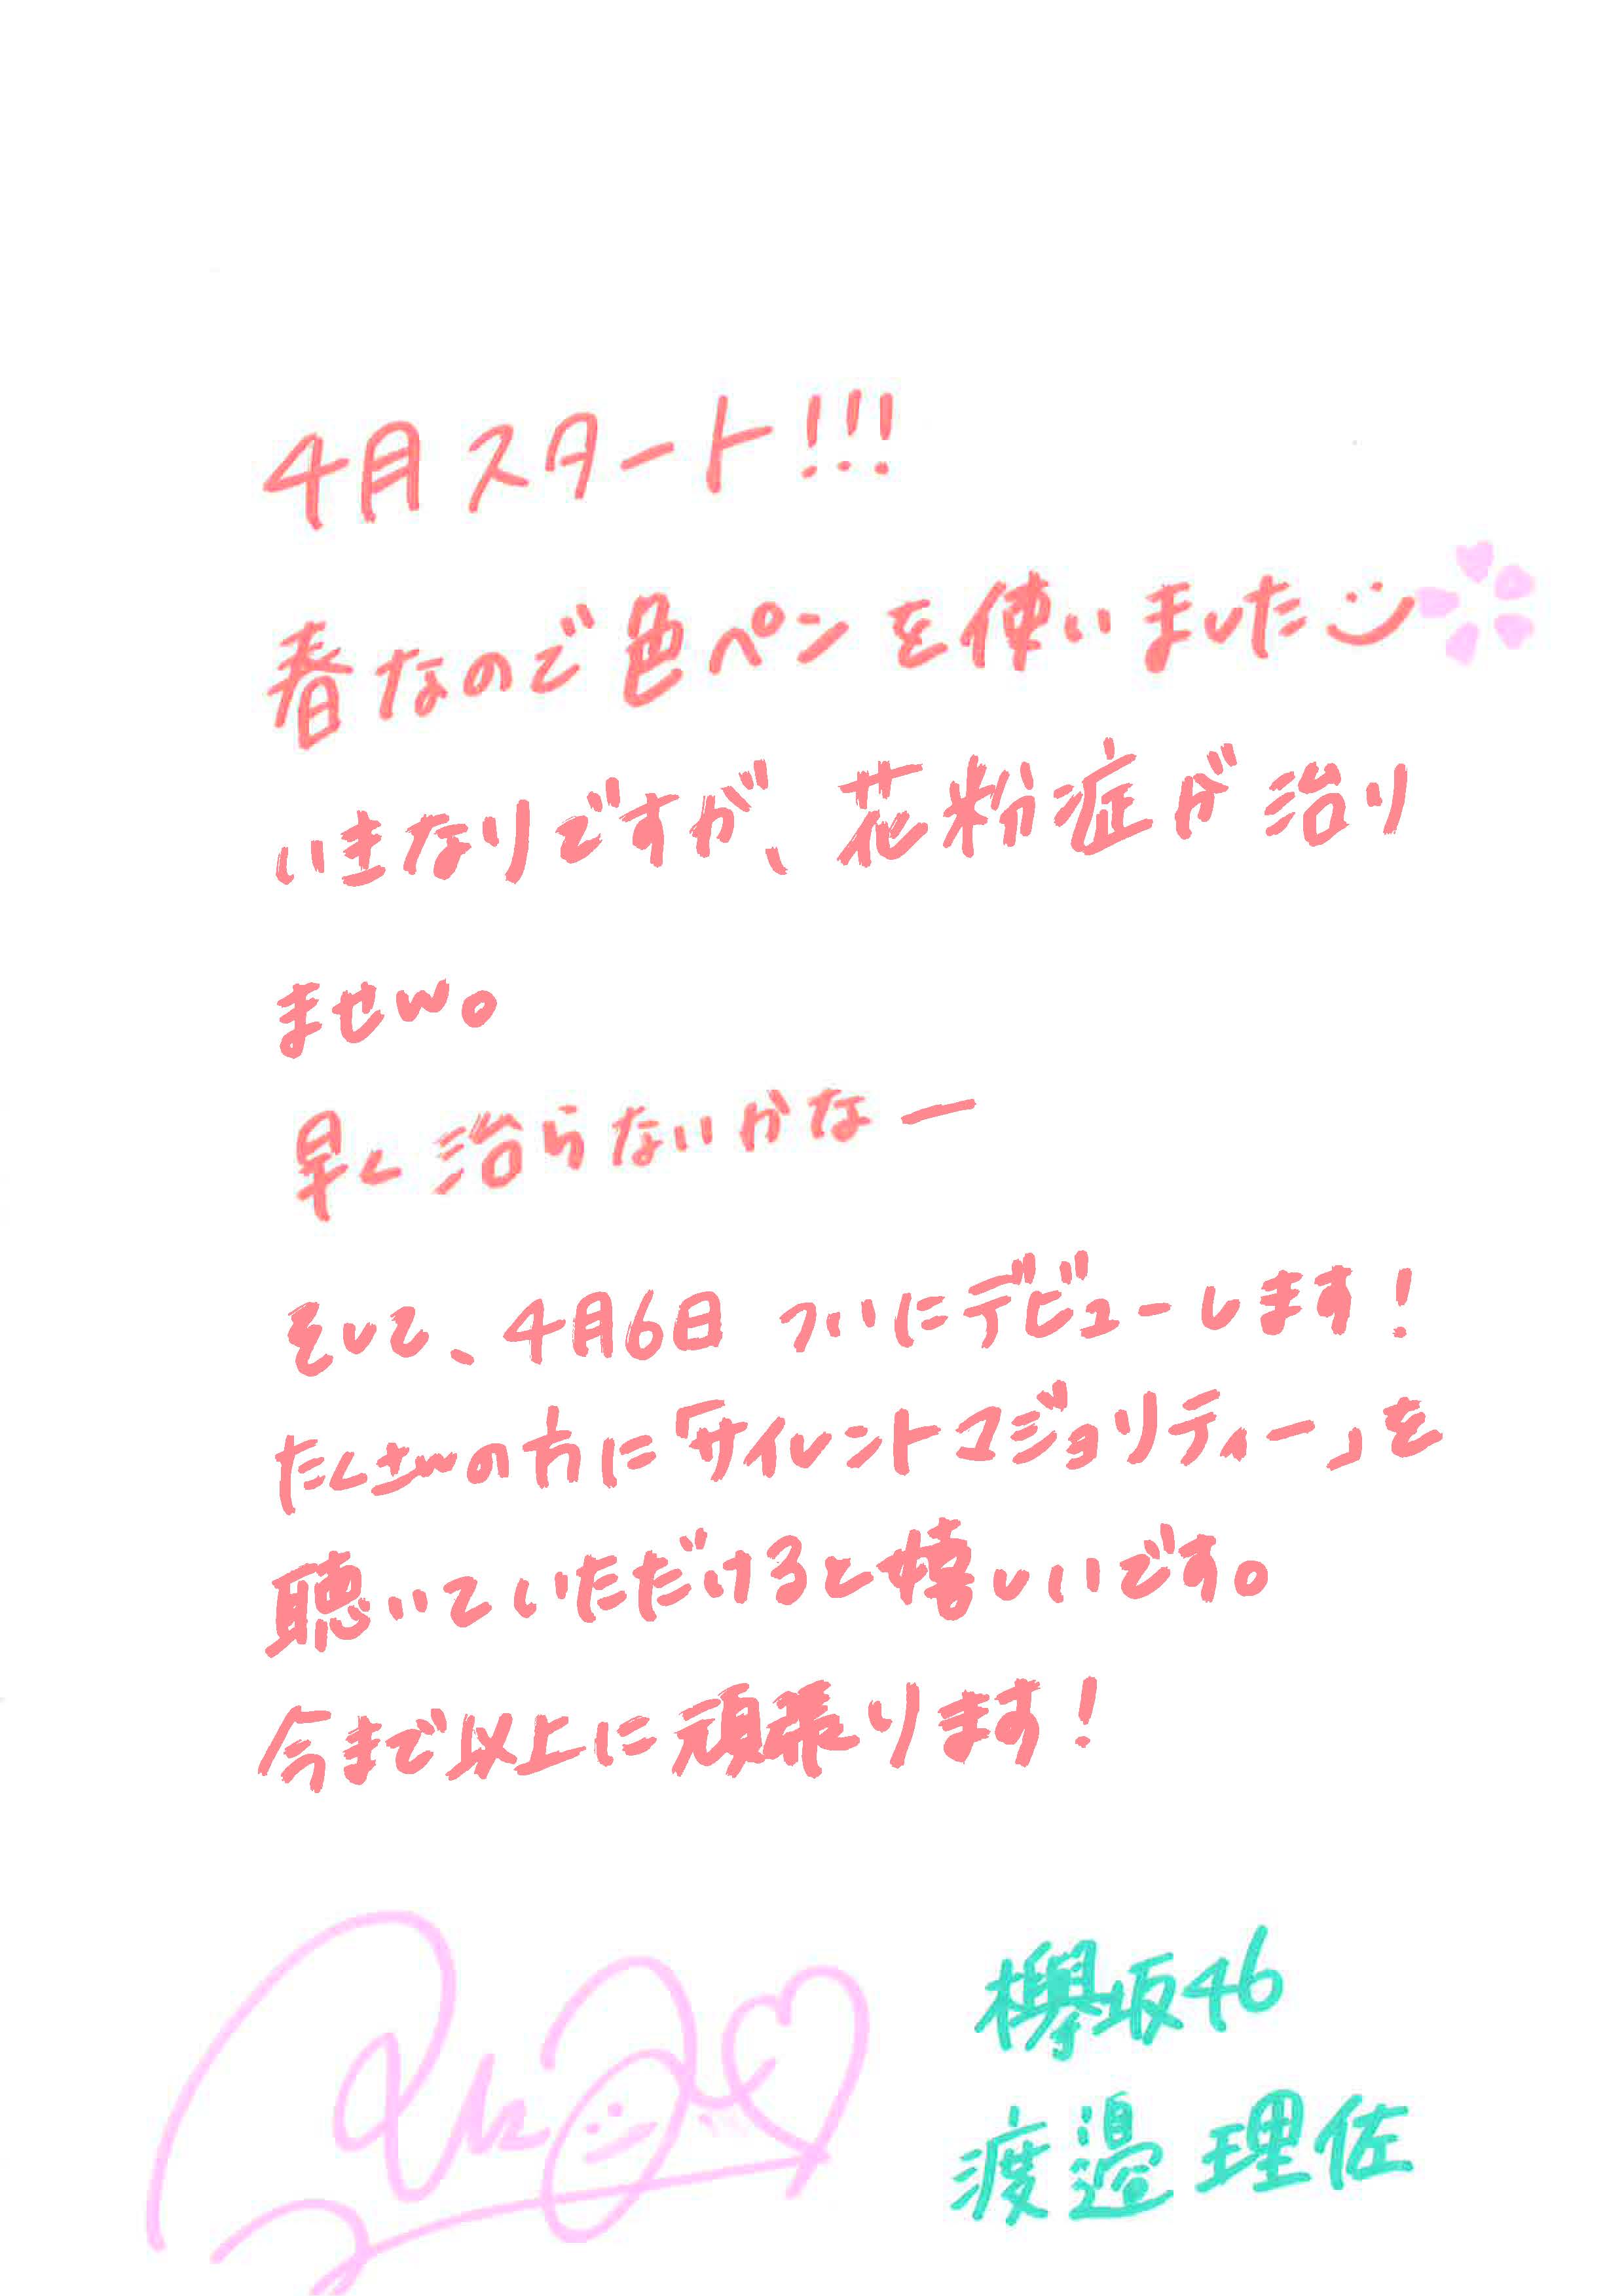 4月スタート!!!
春なので色ペンを使いました
いきなりですが、花粉症が治り
ません。
早く治らないかなー
そして、4月6日 ついにデビューします！
たくさんの方に「サイレントマジョリティー」を
聴いていただけると嬉しいです。
今まで以上に頑張ります！
欅坂46
渡邉理佐